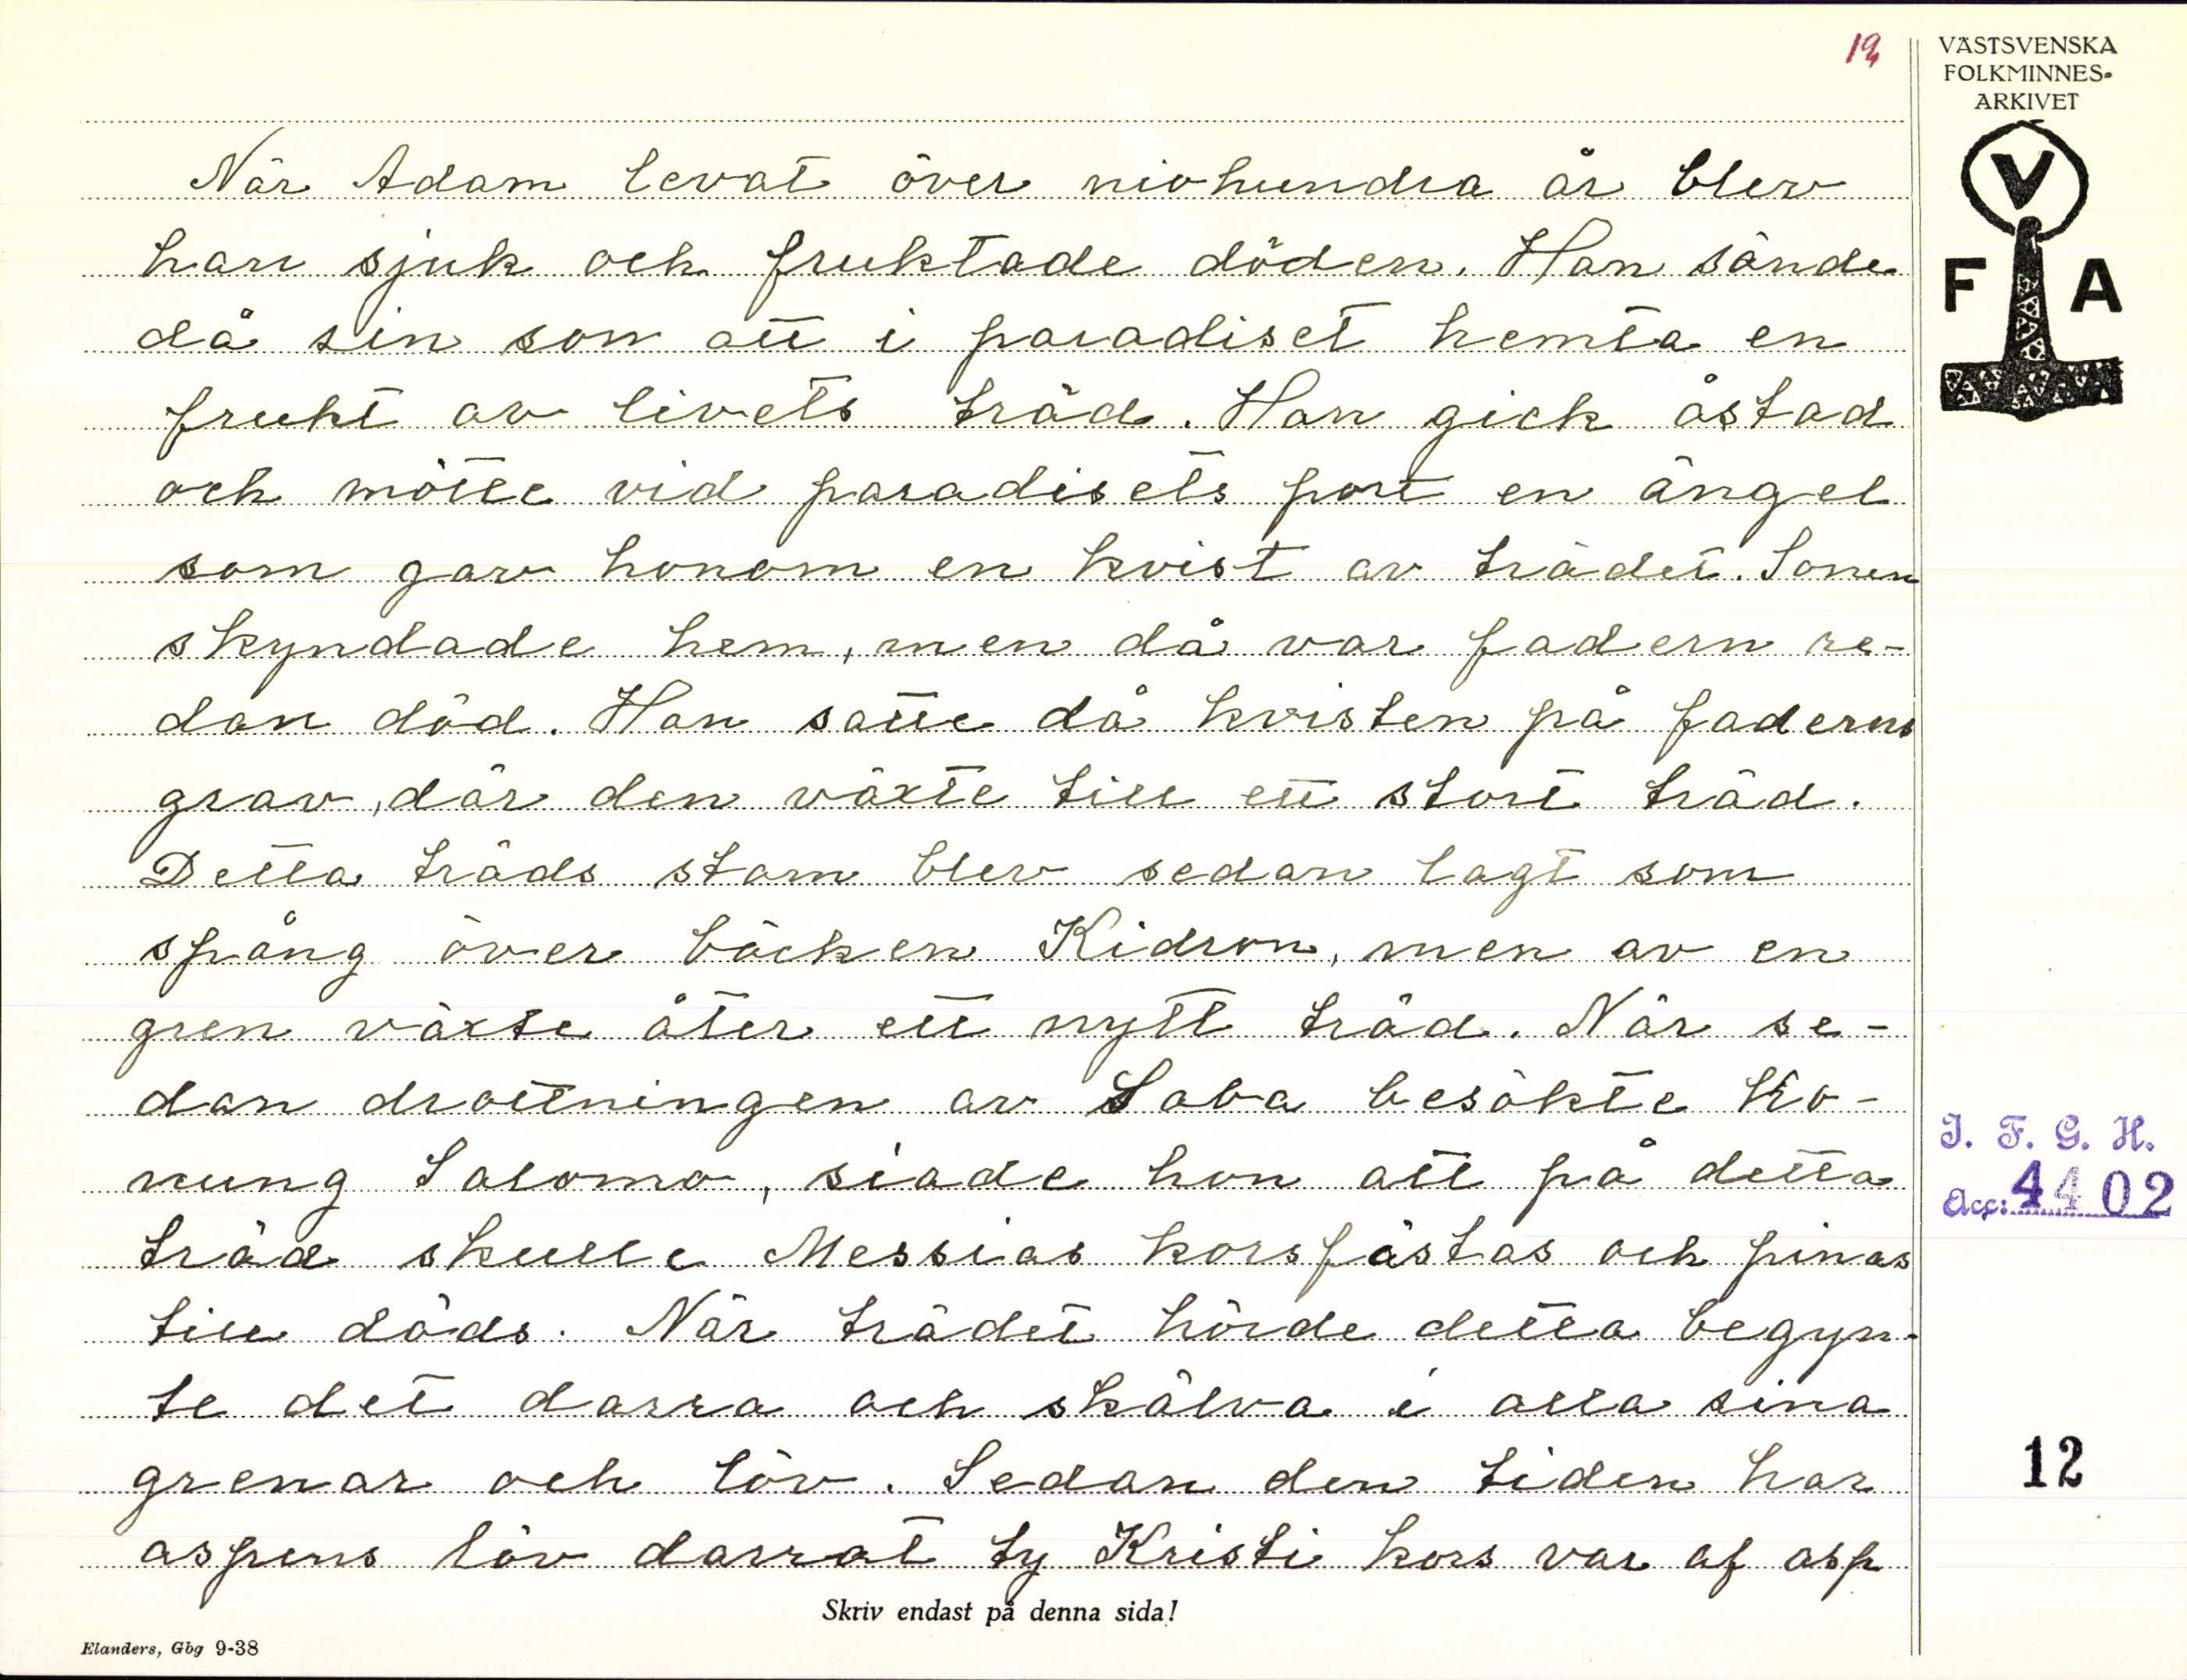 12
VÄSTSVENSKA
FOLKMINNES-
ARKIVET
V
F A
När Adam levat över niohundra år blev
han sjuk och fruktade döden. Han sände
då sin son att i paradiset hemta en
frukt av livets träd. Han gick åstad
och mötte vid paradisets port en ängel
som gav honom en kvist av trädet. Sonen
skyndade hem, men då var fadern re-
dan död. Han satte då kvisten på faderns
grav, där den växte till ett stort träd.
Detta träds stam blev sedan lagt som
spång över bäcken Kidron, men av en
gren växte åter ett nytt träd. När se-
dan drottningen av Saba besökte ko-
nung Salomo, siade hon att på detta
träd skulle Messias korsfästas och pinas
till döds. När trädet hörde detta begyn-
te det darra och skälva i alla sina
grenar och löv. Sedan den tiden har
aspens löv darrat ty Kristi kors var af asp
I. F. G. H.
Acc: 4402
12
Skriv endast på denna sida!
Elanders, Gbg 9-38